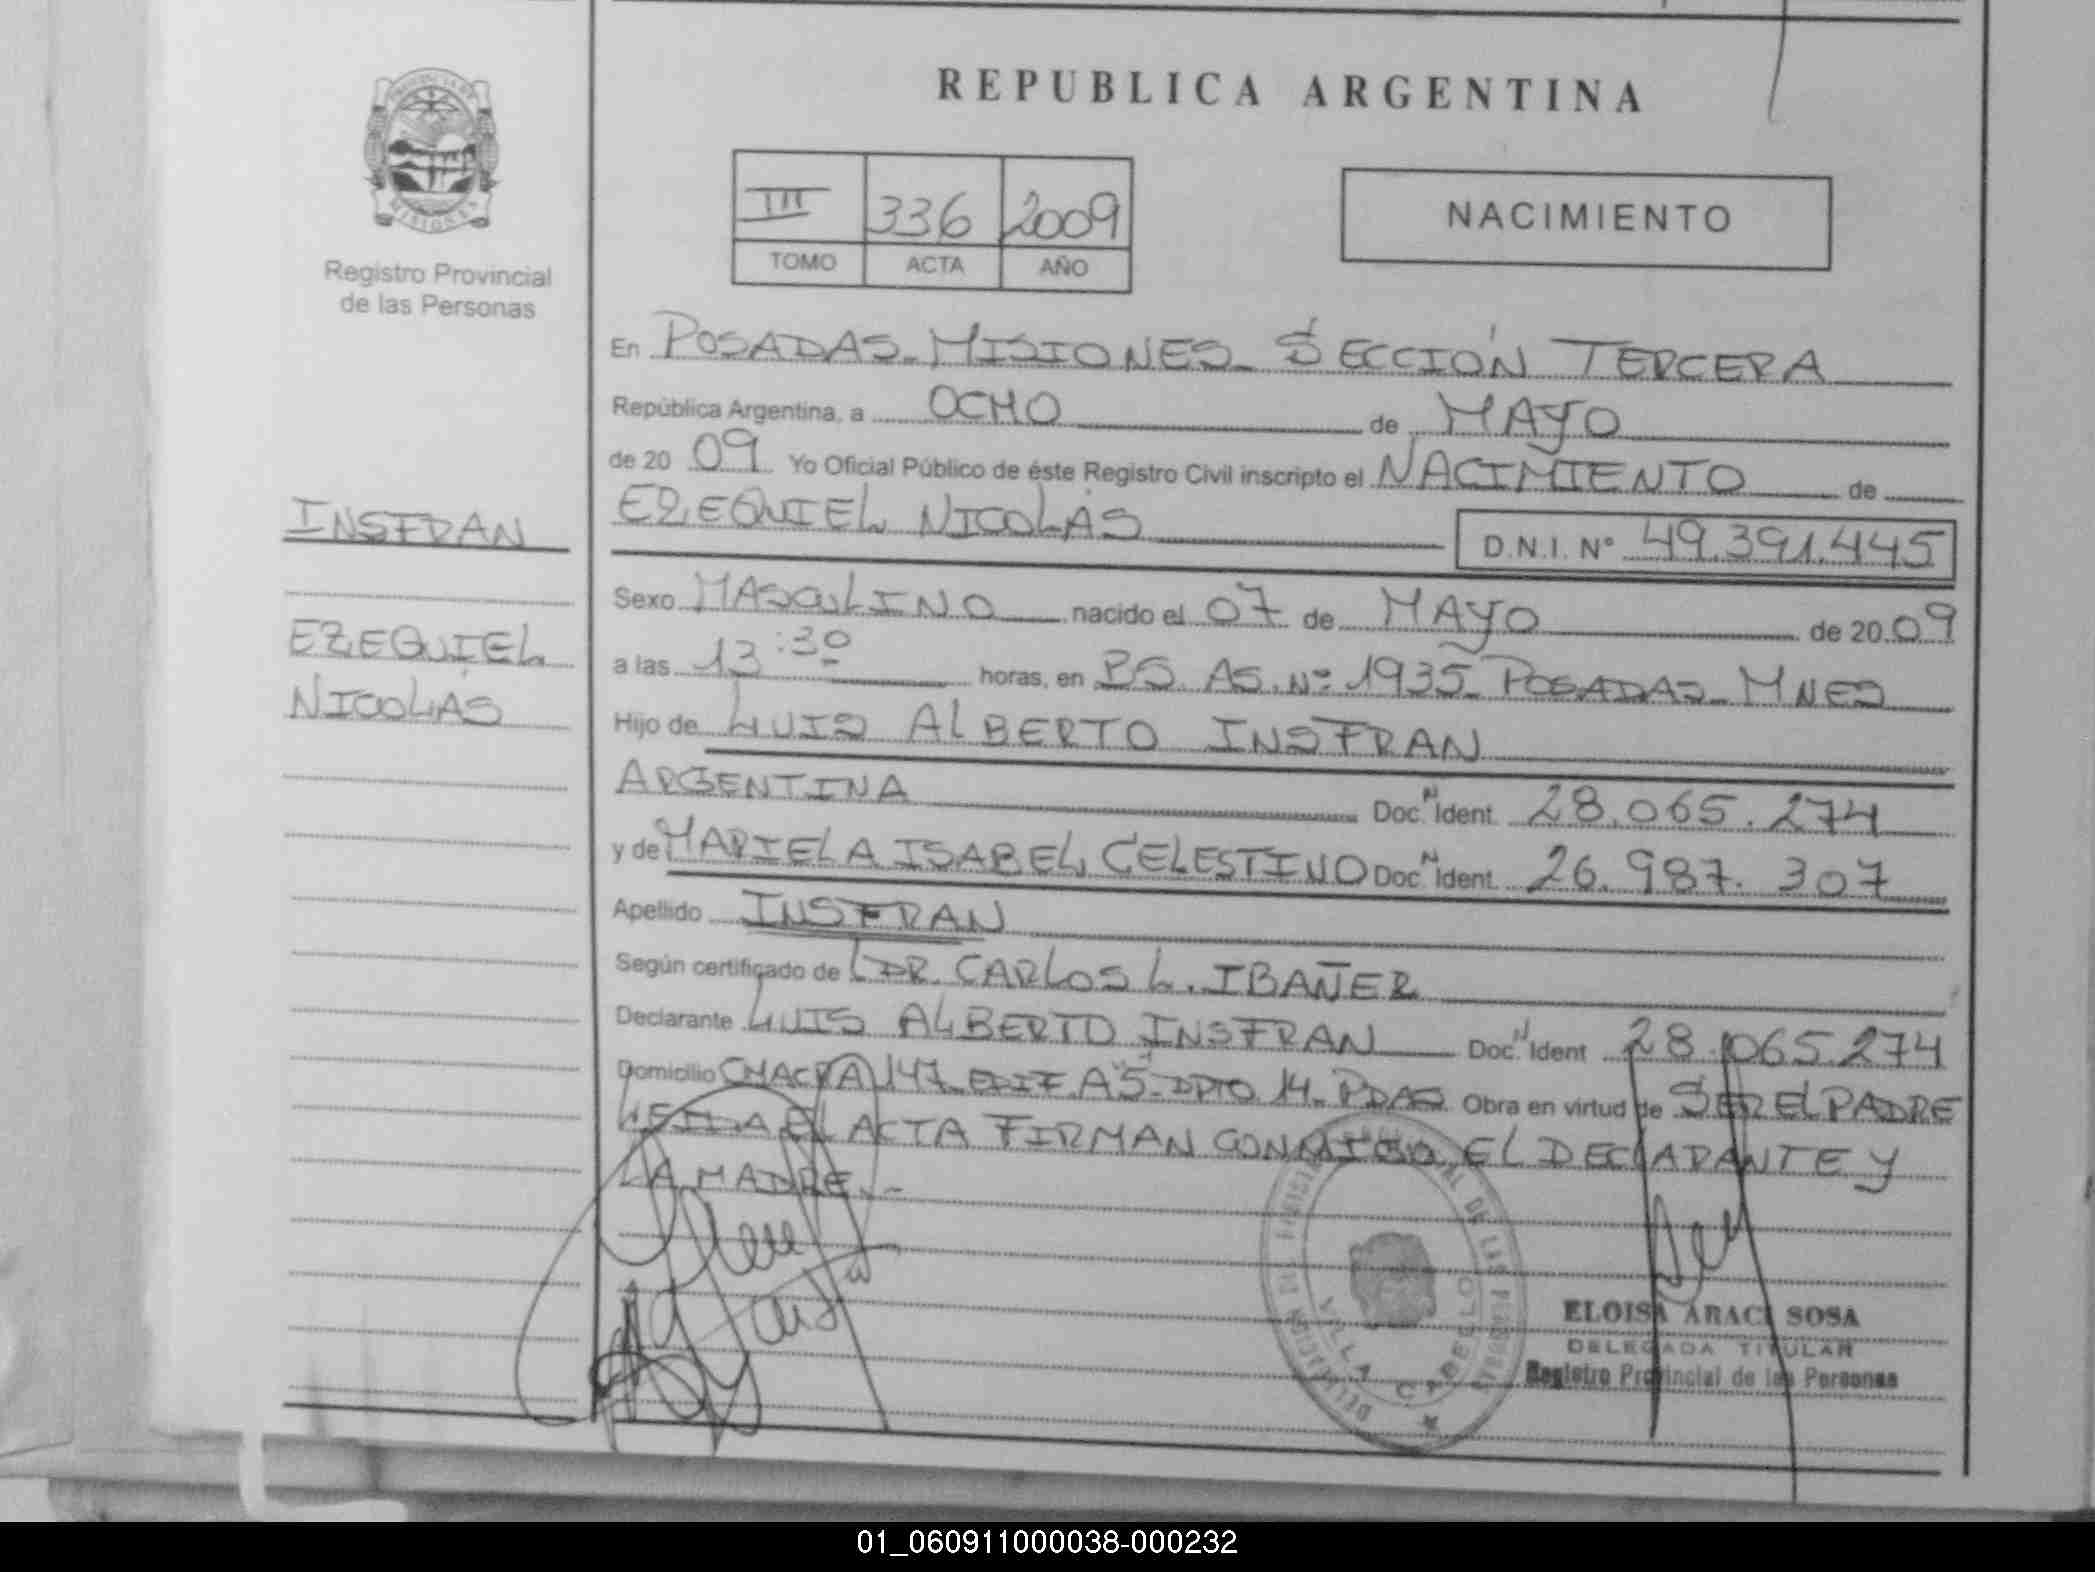 REPUBLICA ARGENTINA
III 336 2009
TOMO ACTA AÑO
NACIMIENTO
Registro Provincial
de las Personas
INSFRAN
EZEQUIEL
NICOLÁS
En POSADAS-MISIONES- SECCIÓN TERCERA
República Argentina, a OCHO de MAYO
de 20 09 Yo Oficial Público de éste Registro Civil inscripto el NACIMIENTO de
EZEQUIEL NICOLÁS D.N.I. N° 49.391.445
Sexo MASCULINO nacido el 07 de MAYO de 20 09
a las 13:30 horas, en BS. AS. Nº 1935- POSADAS- MNES
Hijo de LUIS ALBERTO INSFRAN
ARGENTINA Doc. N Ident. 28.065.274
y de MARIELA ISABEL CELESTINO Doc. N Ident. 26.987.307
Apellido INSFRAN
Según certificado de DR. CARLOS L. IBAÑER
Declarante LUIS ALBERTO INSFRAN Doc. N Ident 28.065.274
Domicilio CHACRA 147- EDIF. A5- DPTO 14- PDAS Obra en virtud de SER EL PADRE
LEIDA EL ACTA FIRMAN CONMIGO, EL DECLARANTE Y
LA MADRE.-
DELEGACION DE REGISTRO PROVINCIAL DE LAS PERSONAS
VILLA CABELLO
ELOISA ARACI SOSA
DELEGADA TITULAR
Registro Provincial de las Personas
01_060911000038-000232